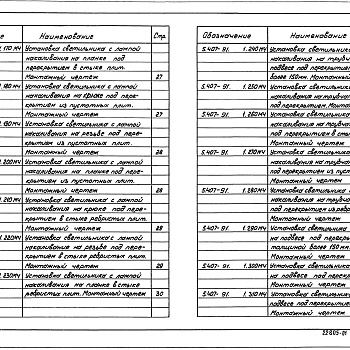 е Наименование Стр.
1.170 МЧ Установка светильника с лампой
накаливания на планке под
перекрытием в стыке плит.
Монтажный чертеж 27
1.180 МЧ Установка светильника с лампой
накаливания на крюке под пере-
крытием из пустотных плит.
Монтажный чертеж 27
1.190 МЧ Установка светильника с лампой
накаливания на резьбе под пере-
крытием из пустотных плит.
Монтажный чертеж 28
1.200 МЧ Установка светильника с лампой
накаливания на планке под пере-
крытием из пустотных плит.
Монтажный чертеж 28
1.210 МЧ Установка светильника с лампой
накаливания на крюке под пере-
крытием в стыке ребристых плит.
Монтажный чертеж 28
1.220 МЧ Установка светильника с лампой
накаливания на резьбе под пере-
крытием в стыке ребристых плит.
Монтажный чертеж 29
1.230 МЧ Установка светильника с лампой
накаливания на планке в стыке
ребристых плит. Монтажный чертеж 30
Обозначение Наименование
5.407-91. 1.240 МЧ Установка светильника
накаливания на трубча
подвесе под перекрытие
более 150мм. Монтажный
5.407-91. 1.250 МЧ Установка светильника
накаливания на трубча
под перекрытием. Монтаж
5.407-91. 1.260 МЧ Установка светильника
накаливания на трубча
под перекрытием в стык
Монтажный чертеж
5.407-91. 1.270 МЧ Установка светильника
накаливания на трубча
под перекрытием из пуст
Монтажный чертеж
5.407-91. 1.280 МЧ Установка светильника
накаливания на трубча
под перекрытием из ребр
Монтажный чертеж
5.407-91. 1.290 МЧ Установка светильника
на подвесе под перекры
толщиной более 150 мм.
Монтажный чертеж
5.407-91. 1.300 МЧ Установка светильника
на подвесе под перекр
Монтажный чертеж
5.407-91. 1.310 МЧ Установка светильника
подвесе под перекрытием
Монтажный чертеж
22805-01